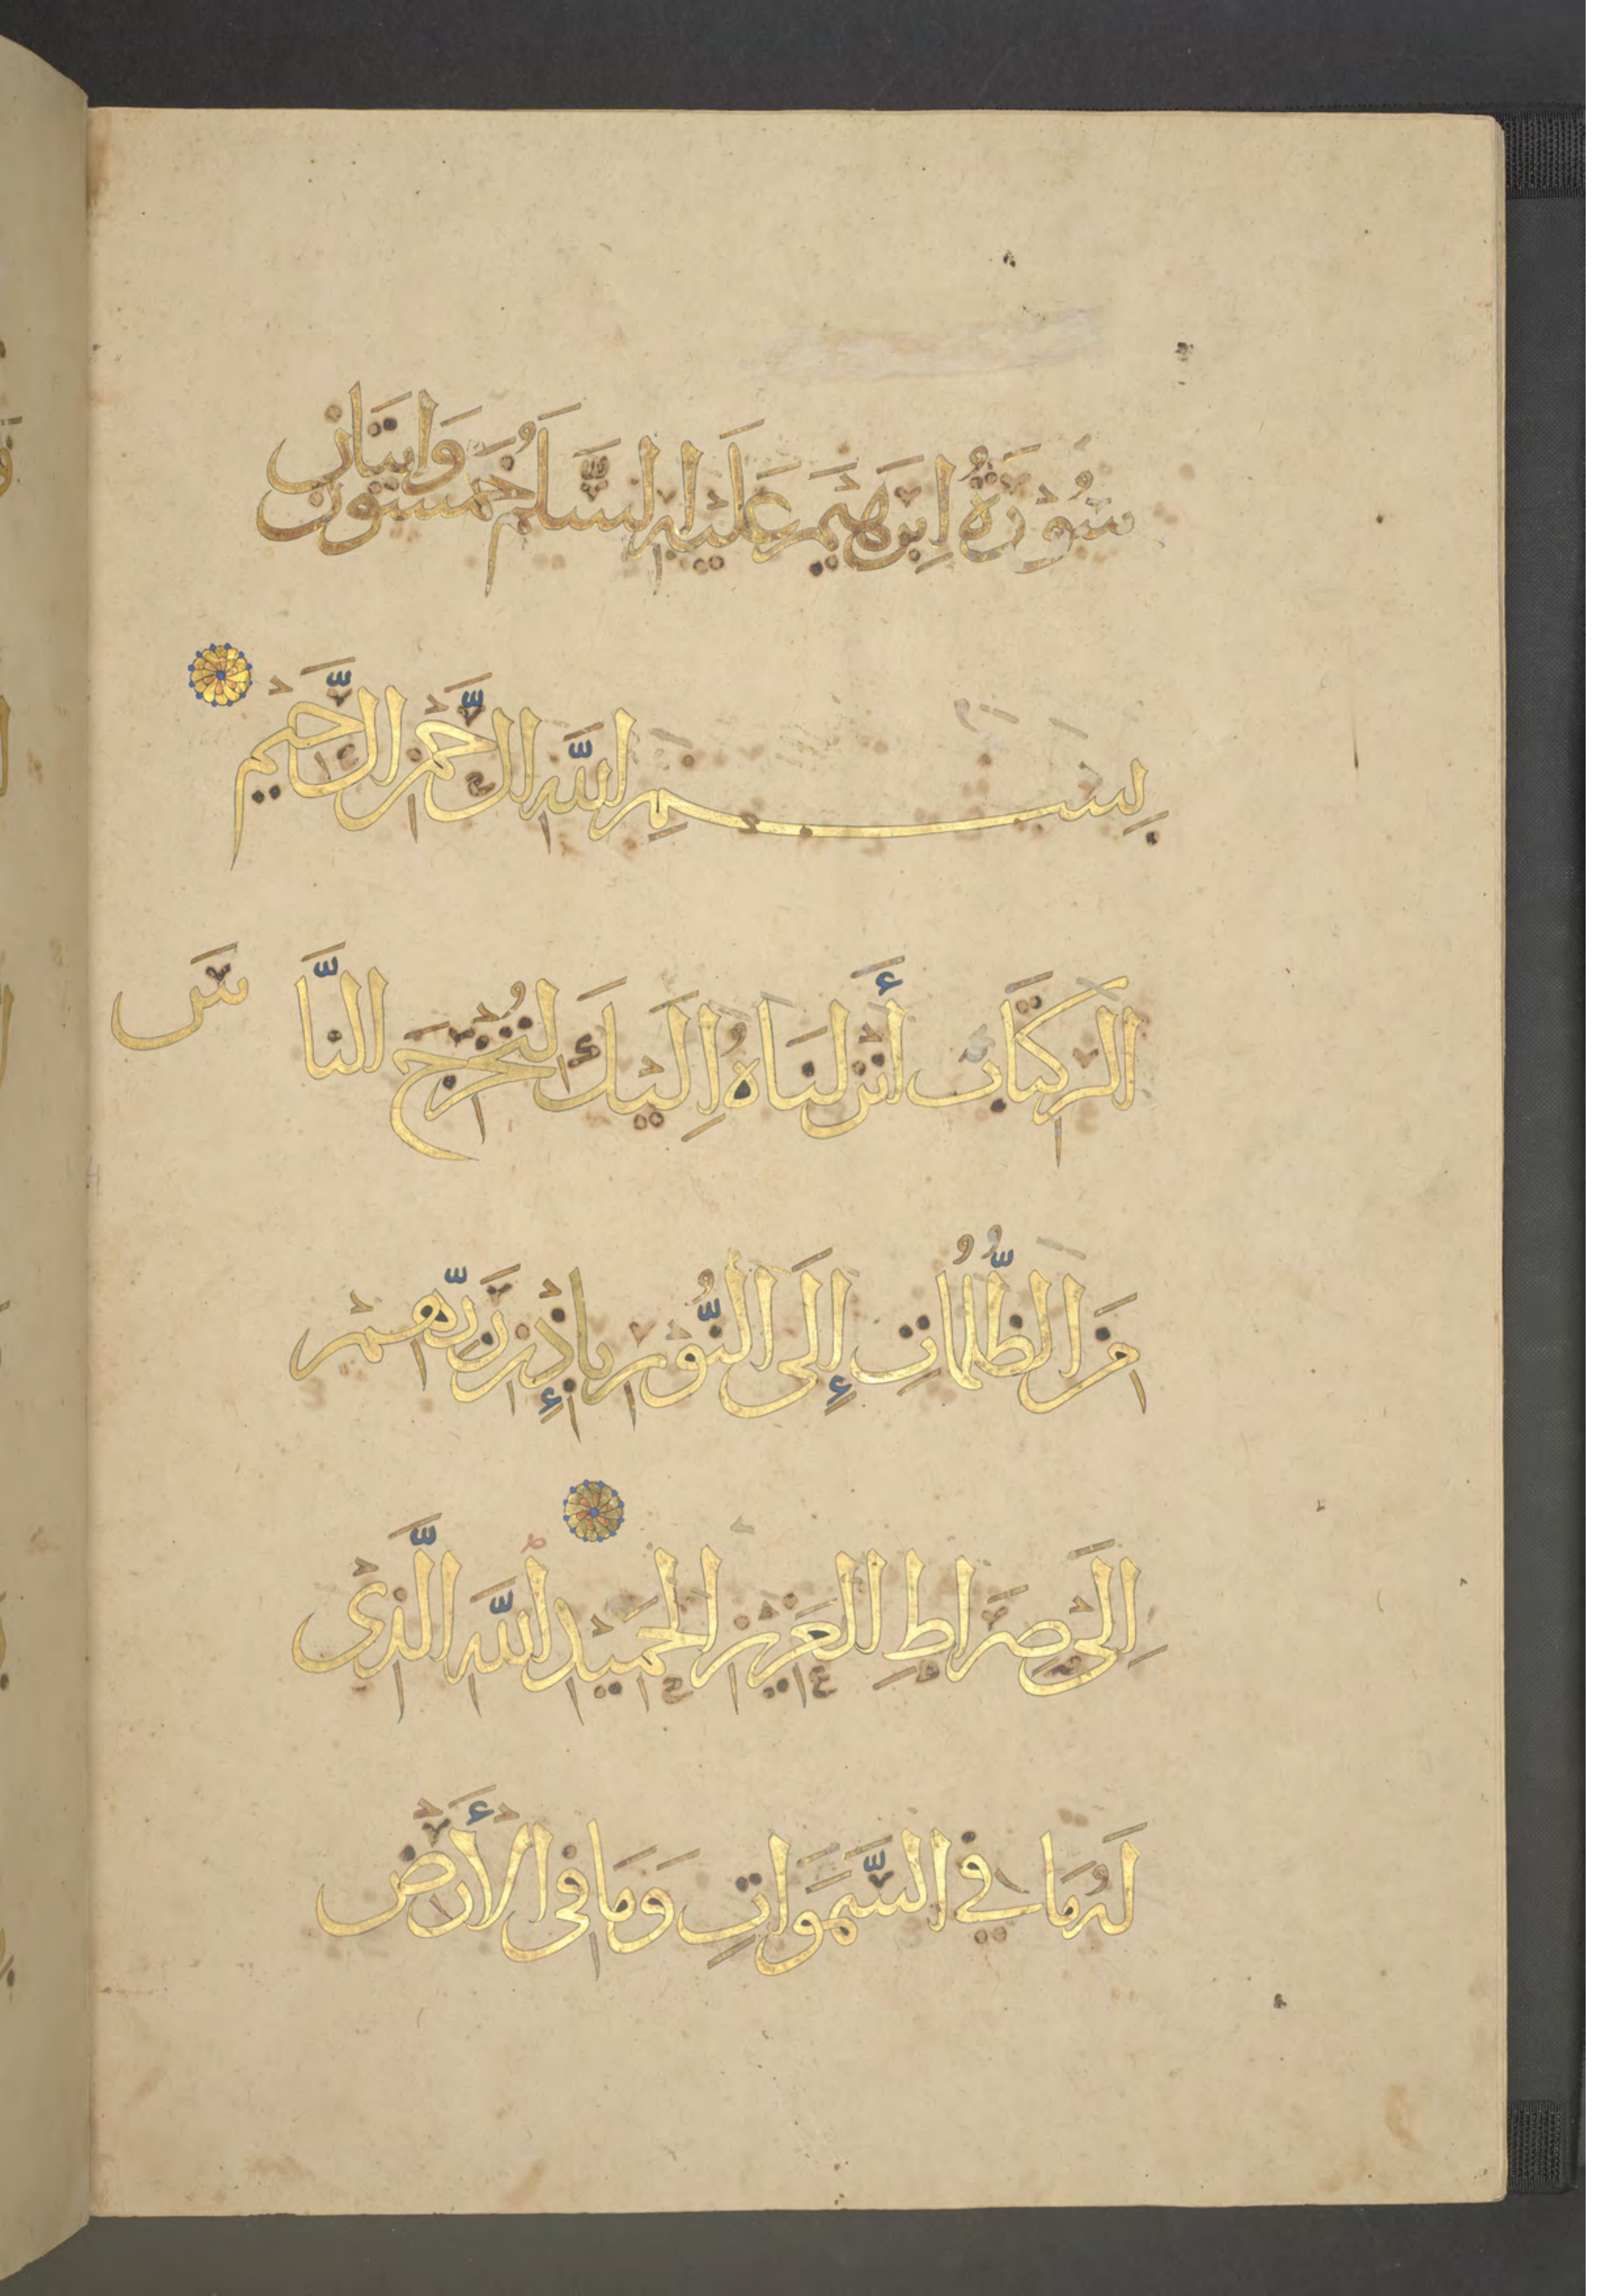 سُوْرَةُ اِبْرَهِيْمَ عَلَيْهِ السَّلَامُ خَمْسُوْنَ وَايتَانِ
بِسْمِ اللَّهِ الرَّحْمَنِ الرَّحِيْمِ
الَر كِتَاب أَنْزَلنَاهُ اِلَيْكَ لِتُخْرِجَ النَّا سَ
مِنَ الظُّلُمَاتِ إِلَى النُّوْرِ بِإِذْنِ رَبِّهِمْ
اِلَى صِرَاطِ العَزِيْزِ الحَمِيْدِ اللَّهِ الَّذِىْ
لَهُ مَا فِي السَّمَوَاتِ وَمَا فِى الْأَرْضِ